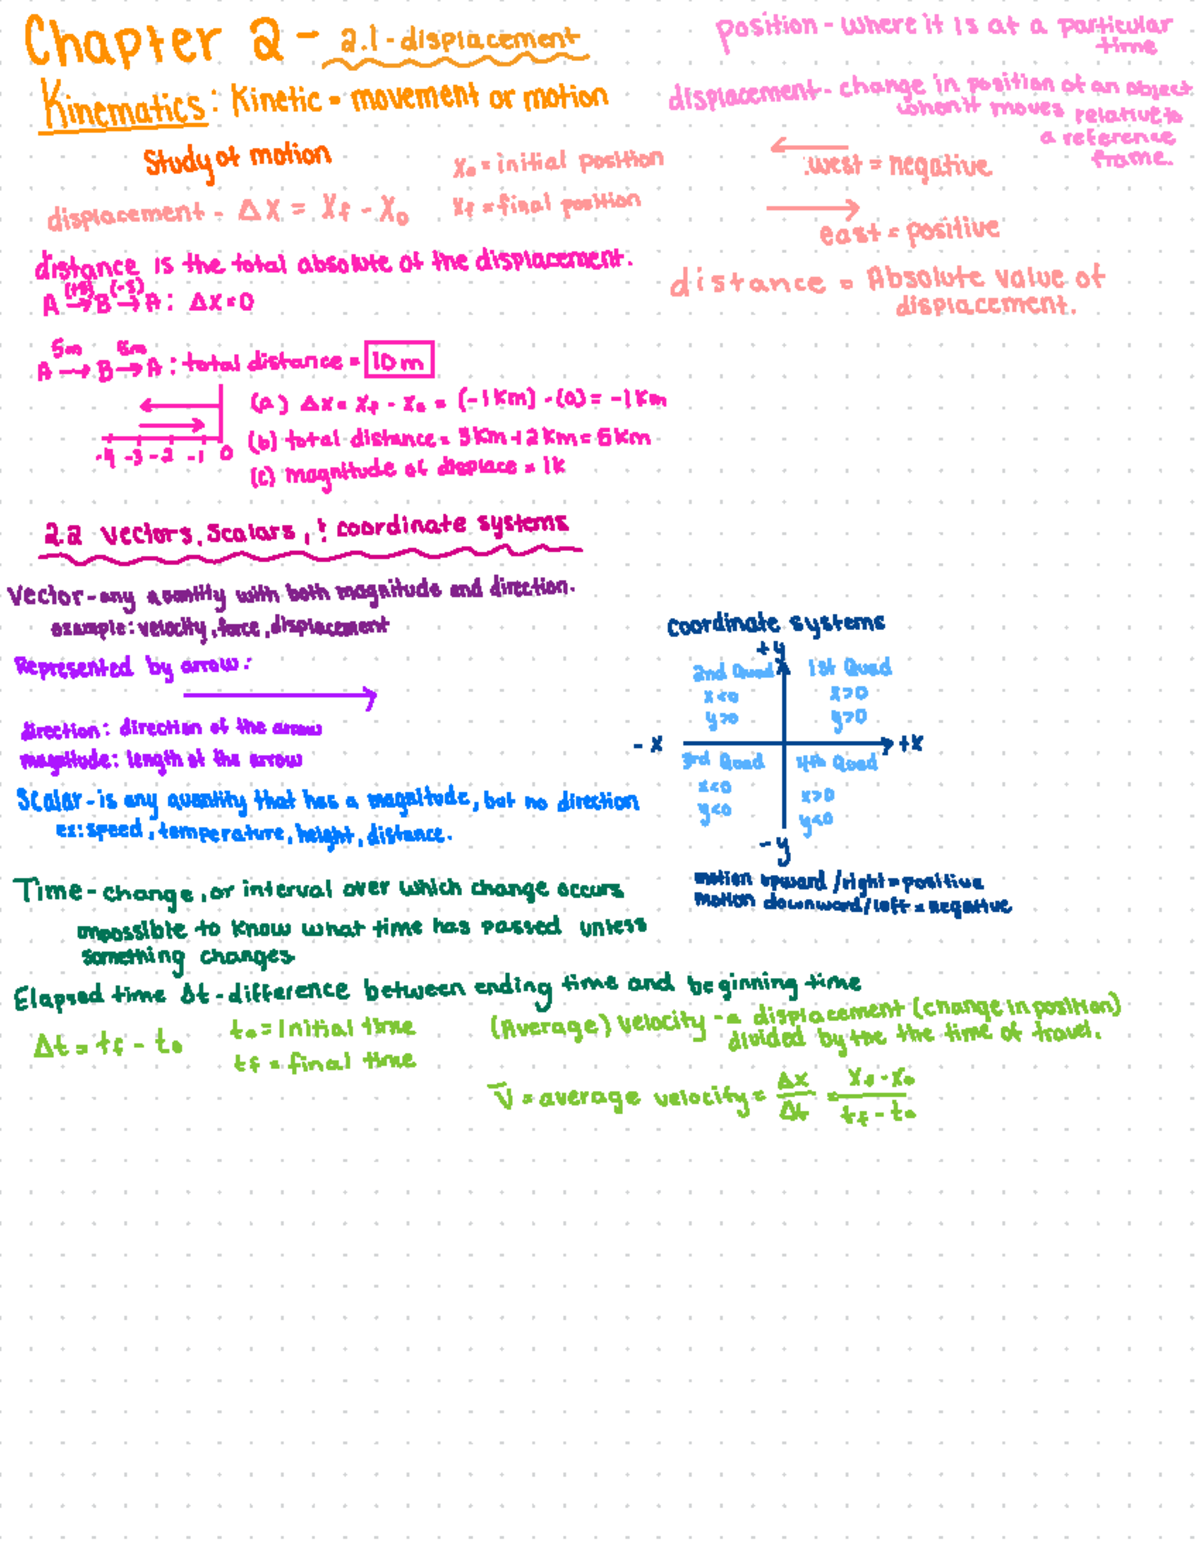 Chapter 2 - 2.1 - displacement
Kinematics: Kinetic = movement or motion
Study of motion
position - where it is at a particular time
displacement - change in position of an object
when it moves relative to
a reference
frame.
x₀ = initial position
xf = final position
displacement - Δx = xf - x₀
west = negative
east = positive
distance = Absolute value of
displacement.
distance is the total absolute of the displacement.
(+5) (-5)
A → B → A : Δx = 0
5m 5m
A → B → A : total distance = 10 m
(a) Δx = xf - x₀ = (-1 km) - (0) = -1 km
(b) total distance = 3 km + 2 km = 5 km
(c) magnitude of displace = 1k
-4 -3 -2 -1 0
2.2 Vectors, Scalars, & coordinate systems
Vector - any quantity with both magnitude and direction.
example: velocity, force, displacement
Represented by arrow:
direction: direction of the arrow
magnitude: length of the arrow
Scalar - is any quantity that has a magnitude, but no direction
ex: speed, temperature, height, distance.
coordinate systems
+y
2nd Quad 1st Quad
x<0 x>0
y>0 y>0
-x +x
3rd Quad 4th Quad
x<0 x>0
y<0 y<0
-y
motion upward/right = positive
motion downward/left = negative
Time - change, or interval over which change occurs
impossible to know what time has passed unless
something changes
Elapsed time Δt - difference between ending time and beginning time
Δt = tf - t₀
t₀ = initial time
tf = final time
(Average) velocity - a displacement (change in position)
divided by the the time of travel.
v̄ = average velocity = Δx/Δt = xf - x₀ / tf - t₀